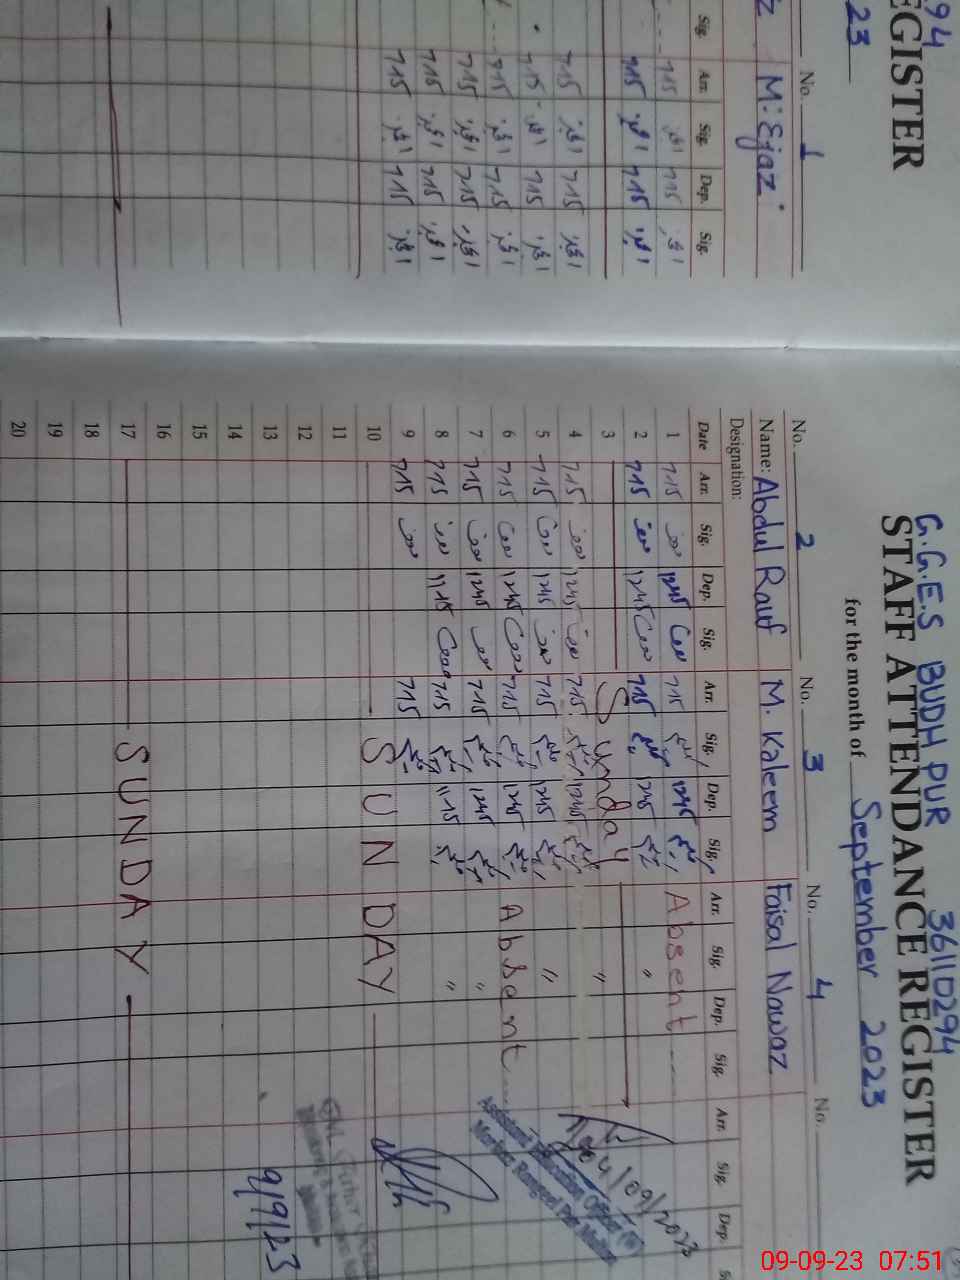 294
EGISTER
23
No. 1
M: Ejaz
Sig. Arr. Sig. Dep. Sig.
715 715
715 715
715 715
715 715
715 715
715 715
715 715
715 715
G.G.E.S BUDH PUR 36110294
STAFF ATTENDANCE REGISTER
for the month of September 2023
No. 2 No. 3 No. 4 No.
Name: Abdul Rauf M. Kaleem Faisal Nawaz
Designation:
Date Arr. Sig. Dep. Sig. Arr. Sig. Dep. Sig. Arr. Sig. Dep. Sig. Arr. Sig. Dep.
1 715 1245 715 1245 Absent
2 715 1245 715 1245 "
3 Sunday "
4 715 1245 715 1245
5 715 1245 715 1245 "
6 715 1245 715 1245 Absent
7 715 1245 715 1245 "
8 715 1115 715 1115 "
9 715 715
10 SUNDAY
11
12
13
14
15
16
17 SUNDAY
18
19
20
04/09/2023
Assistant Education Officer
9/9/23
09-09-23 07:51